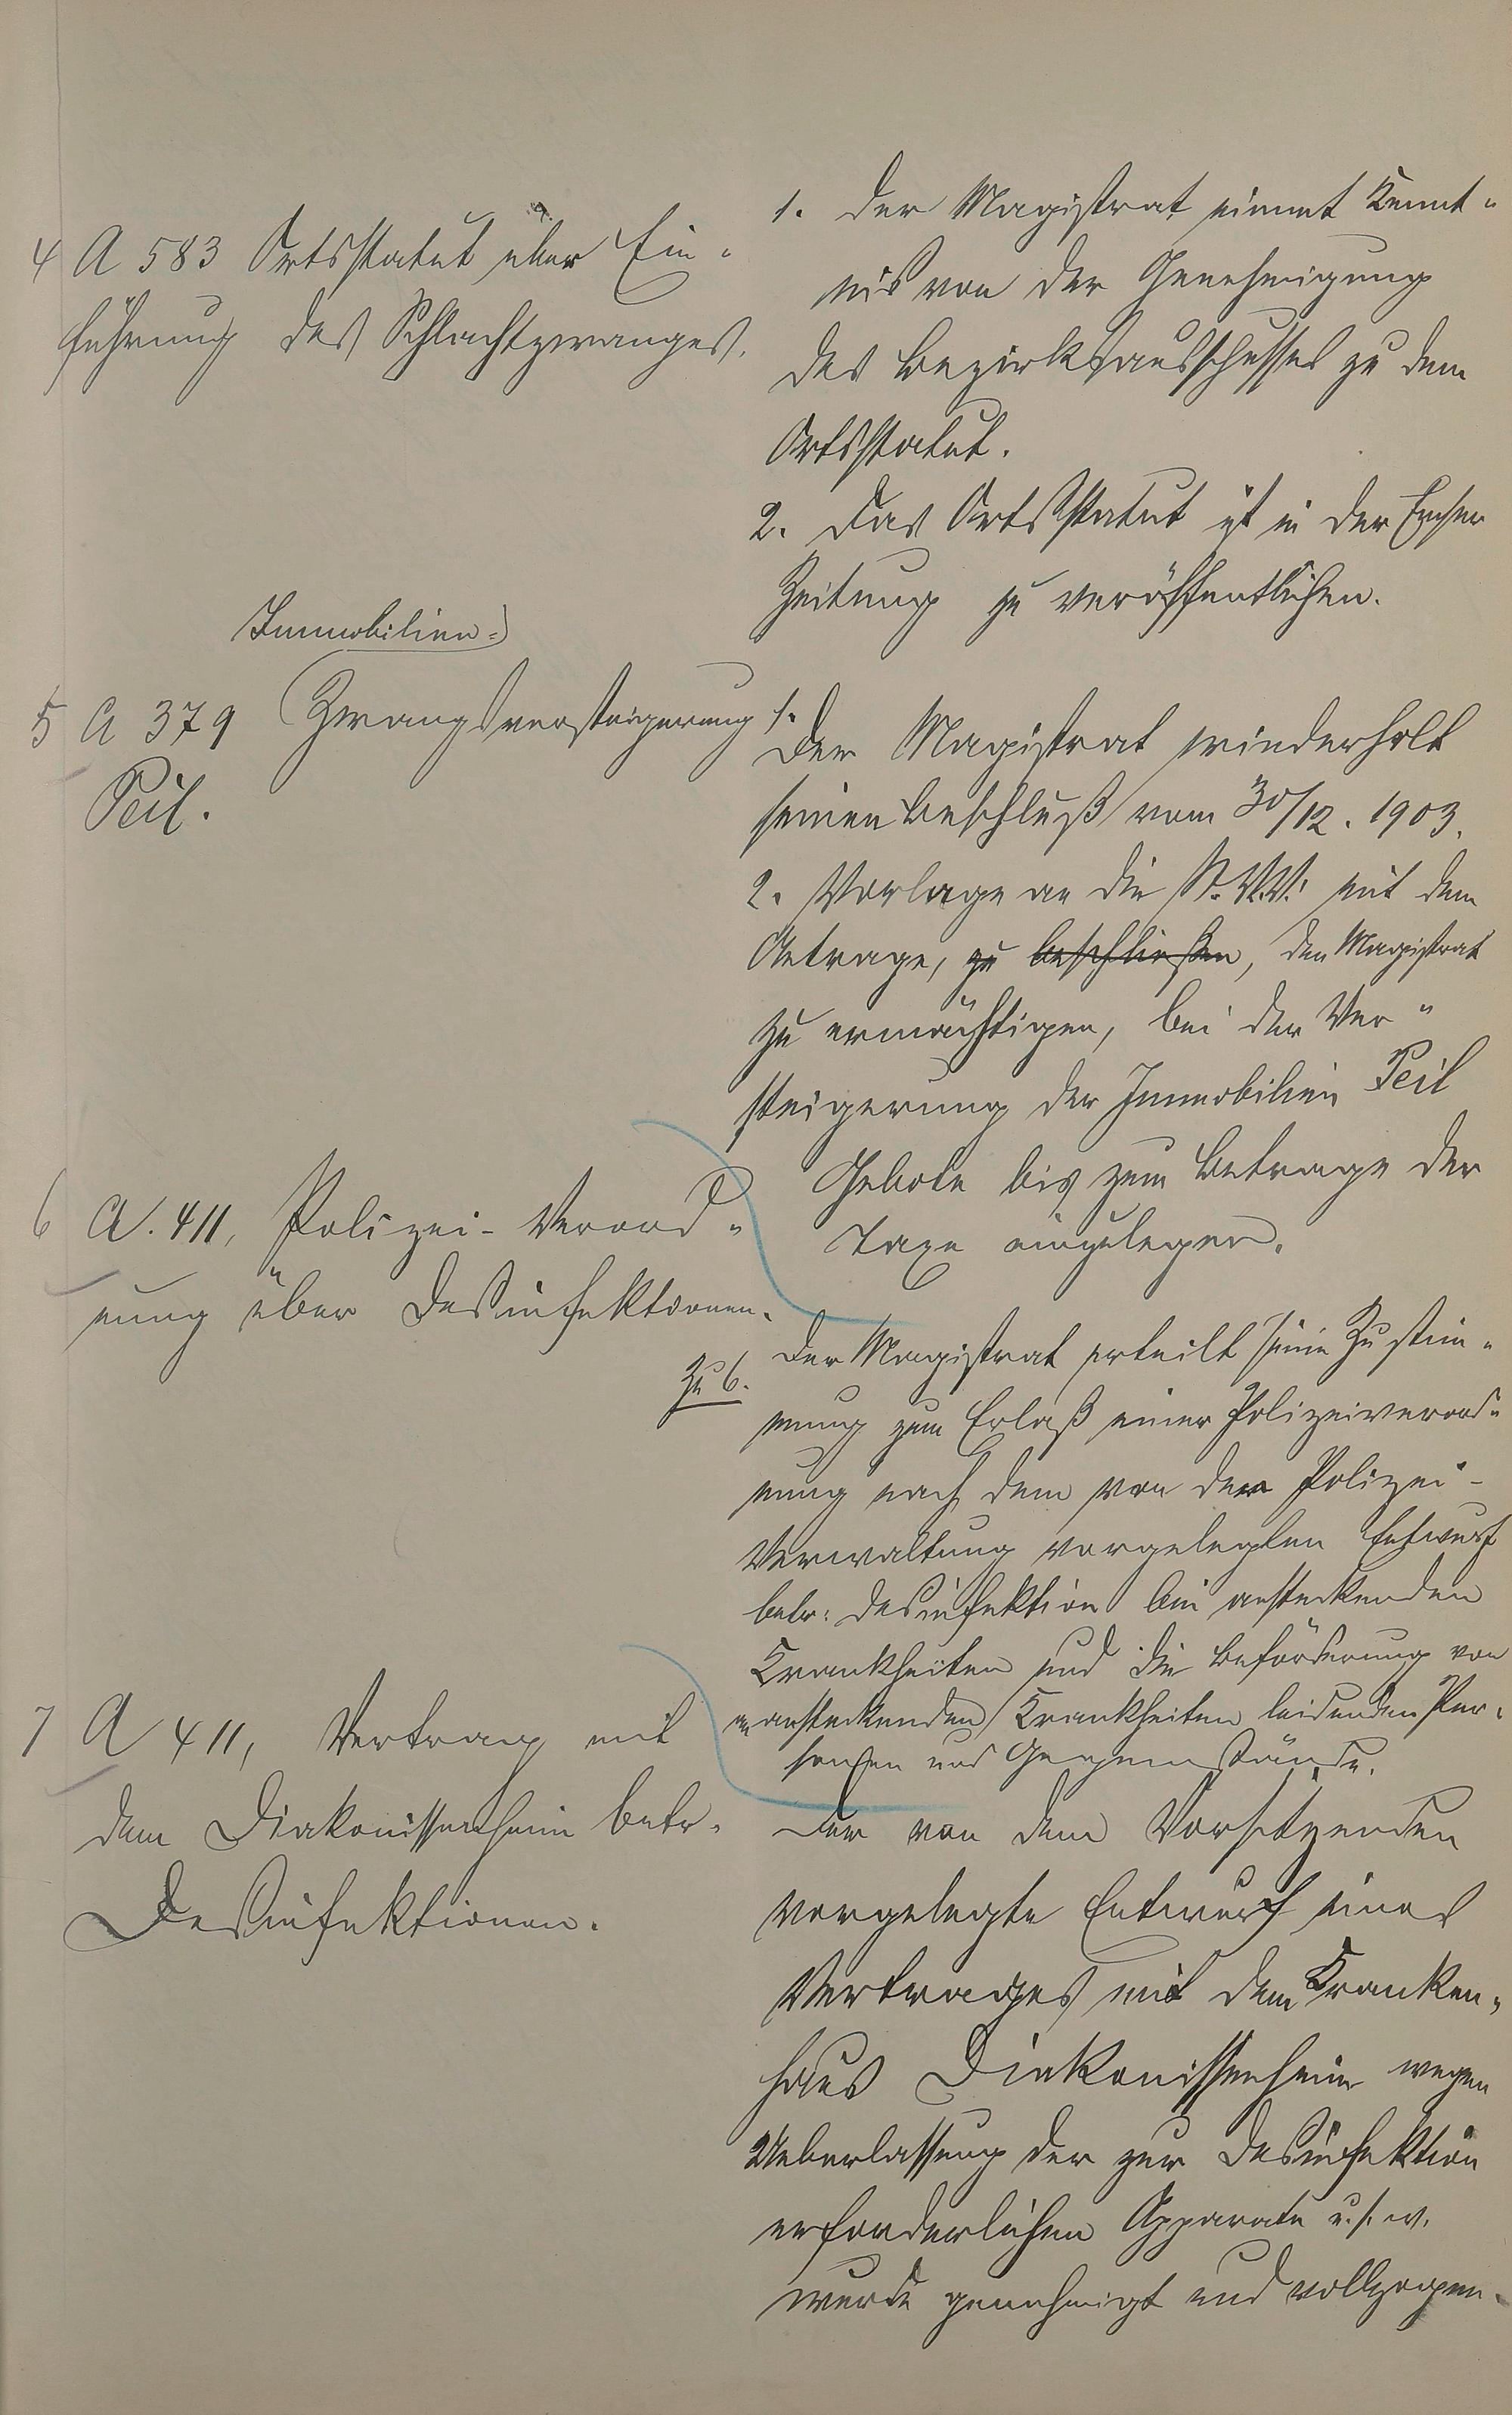 4 A 583 Ortsstatut über Ein-
führung des Schlachtzwanges.
1. Der Magistrat nimmt Kennt-
nis von der Genehmigung
des Bezirksausschusses zu dem
Ortsstatut.
2. Das Ortsstatut ist in der Emser
Zeitung zu veröffentlichen.
Immobilien-
5 A 379 Zwangsversteigerung
Peil.
1.
Der Magistrat wiederholt
seinen Beschluß vom 30/12. 1903.
2. Vorlage an die St. V.V. mit dem
Antrage, zu beschließen, den Magistrat
zu ermächtigen, bei der Ver-
steigerung der Immobilien Peil
Gebote bis zum Betrage der
Taxe einzulegen.
6 A. 411, Polizei-Verord-
nung über Desinfektionen.
Zu 6.
Der Magistrat erteilt seine Zustim-
mung zum Erlaß einer Polizeiverord-
nung nach dem von der Polizei-
Verwaltung vorgelegten Entwurf
betr. Desinfektion bei ansteckenden
Krankheiten und die Beförderung von
an ansteckenden Krankheiten leidenden Per-
sonen und Gegenstände.
7 A 411, Vertrag mit
dem Diakonissenheim betr.
Desinfektionen.
Der von dem Vorsitzenden
vorgelegte Entwurf eines
Vertrages mit dem Kranken-
haus Diakonissenheim wegen
Ueberlassung der zur Desinfektion
erforderlichen Apparate u.s.w.
wurde genehmigt und vollzogen.